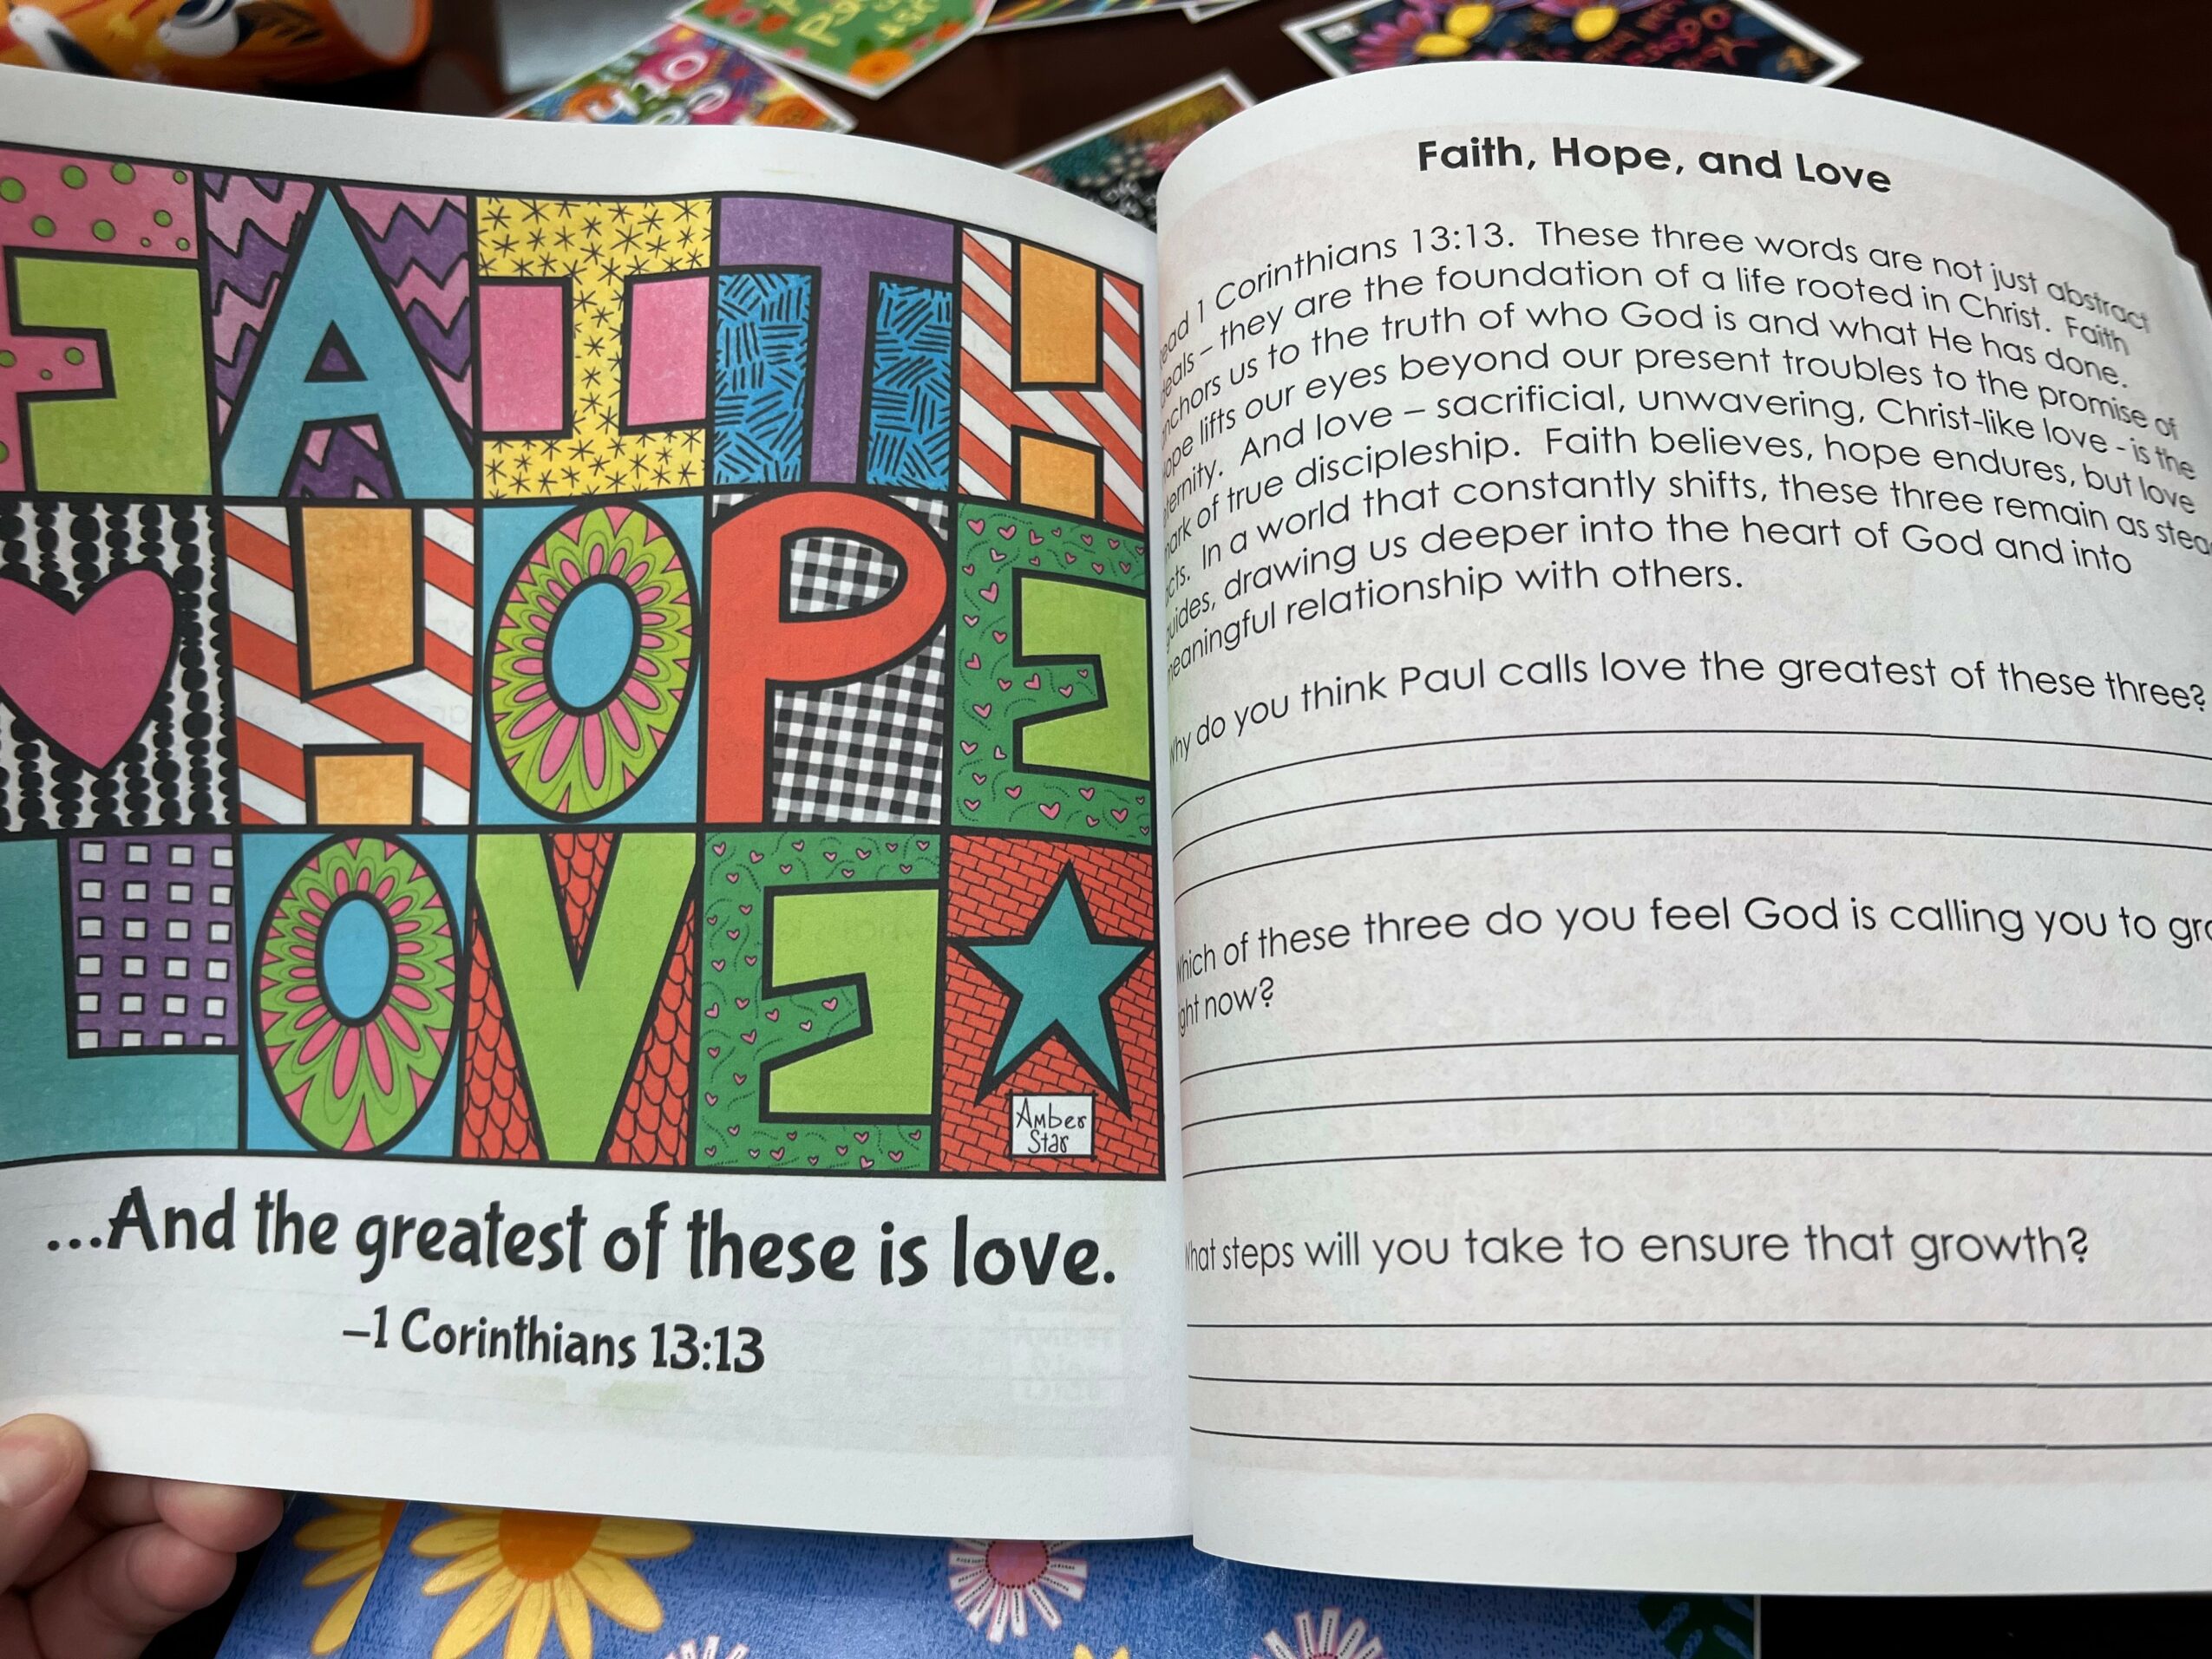 FAITH
HOPE
LOVE
Amber
Star
...And the greatest of these is love.
–1 Corinthians 13:13
Faith, Hope, and Love
1 Corinthians 13:13. These three words are not just abstract
– they are the foundation of a life rooted in Christ. Faith
us to the truth of who God is and what He has done.
lifts our eyes beyond our present troubles to the promise of
And love – sacrificial, unwavering, Christ-like love - is the
of true discipleship. Faith believes, hope endures, but love
In a world that constantly shifts, these three remain as
drawing us deeper into the heart of God and into
relationship with others.
do you think Paul calls love the greatest of these three?
of these three do you feel God is calling you to
now?
steps will you take to ensure that growth?